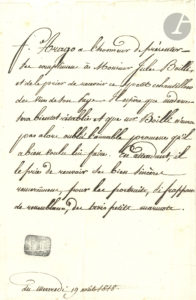 f. Arago a l'honneur de présenter
ses complimens à Monsieur Jules Baille
et de le prier de recevoir ce petit échantillon
des vins de son pays. Il espère que madame
est bientôt rétablie et que Mr Baille n'aura
pas alors oublié l'aimable promesse qu'il
a bien voulu lui faire. En attendant il
le prie de recevoir ses bien sincères
remerciemens, pour les portraits, si frappans
de ressemblance, des trois petits marmots.
du mercredi 19 août 1818